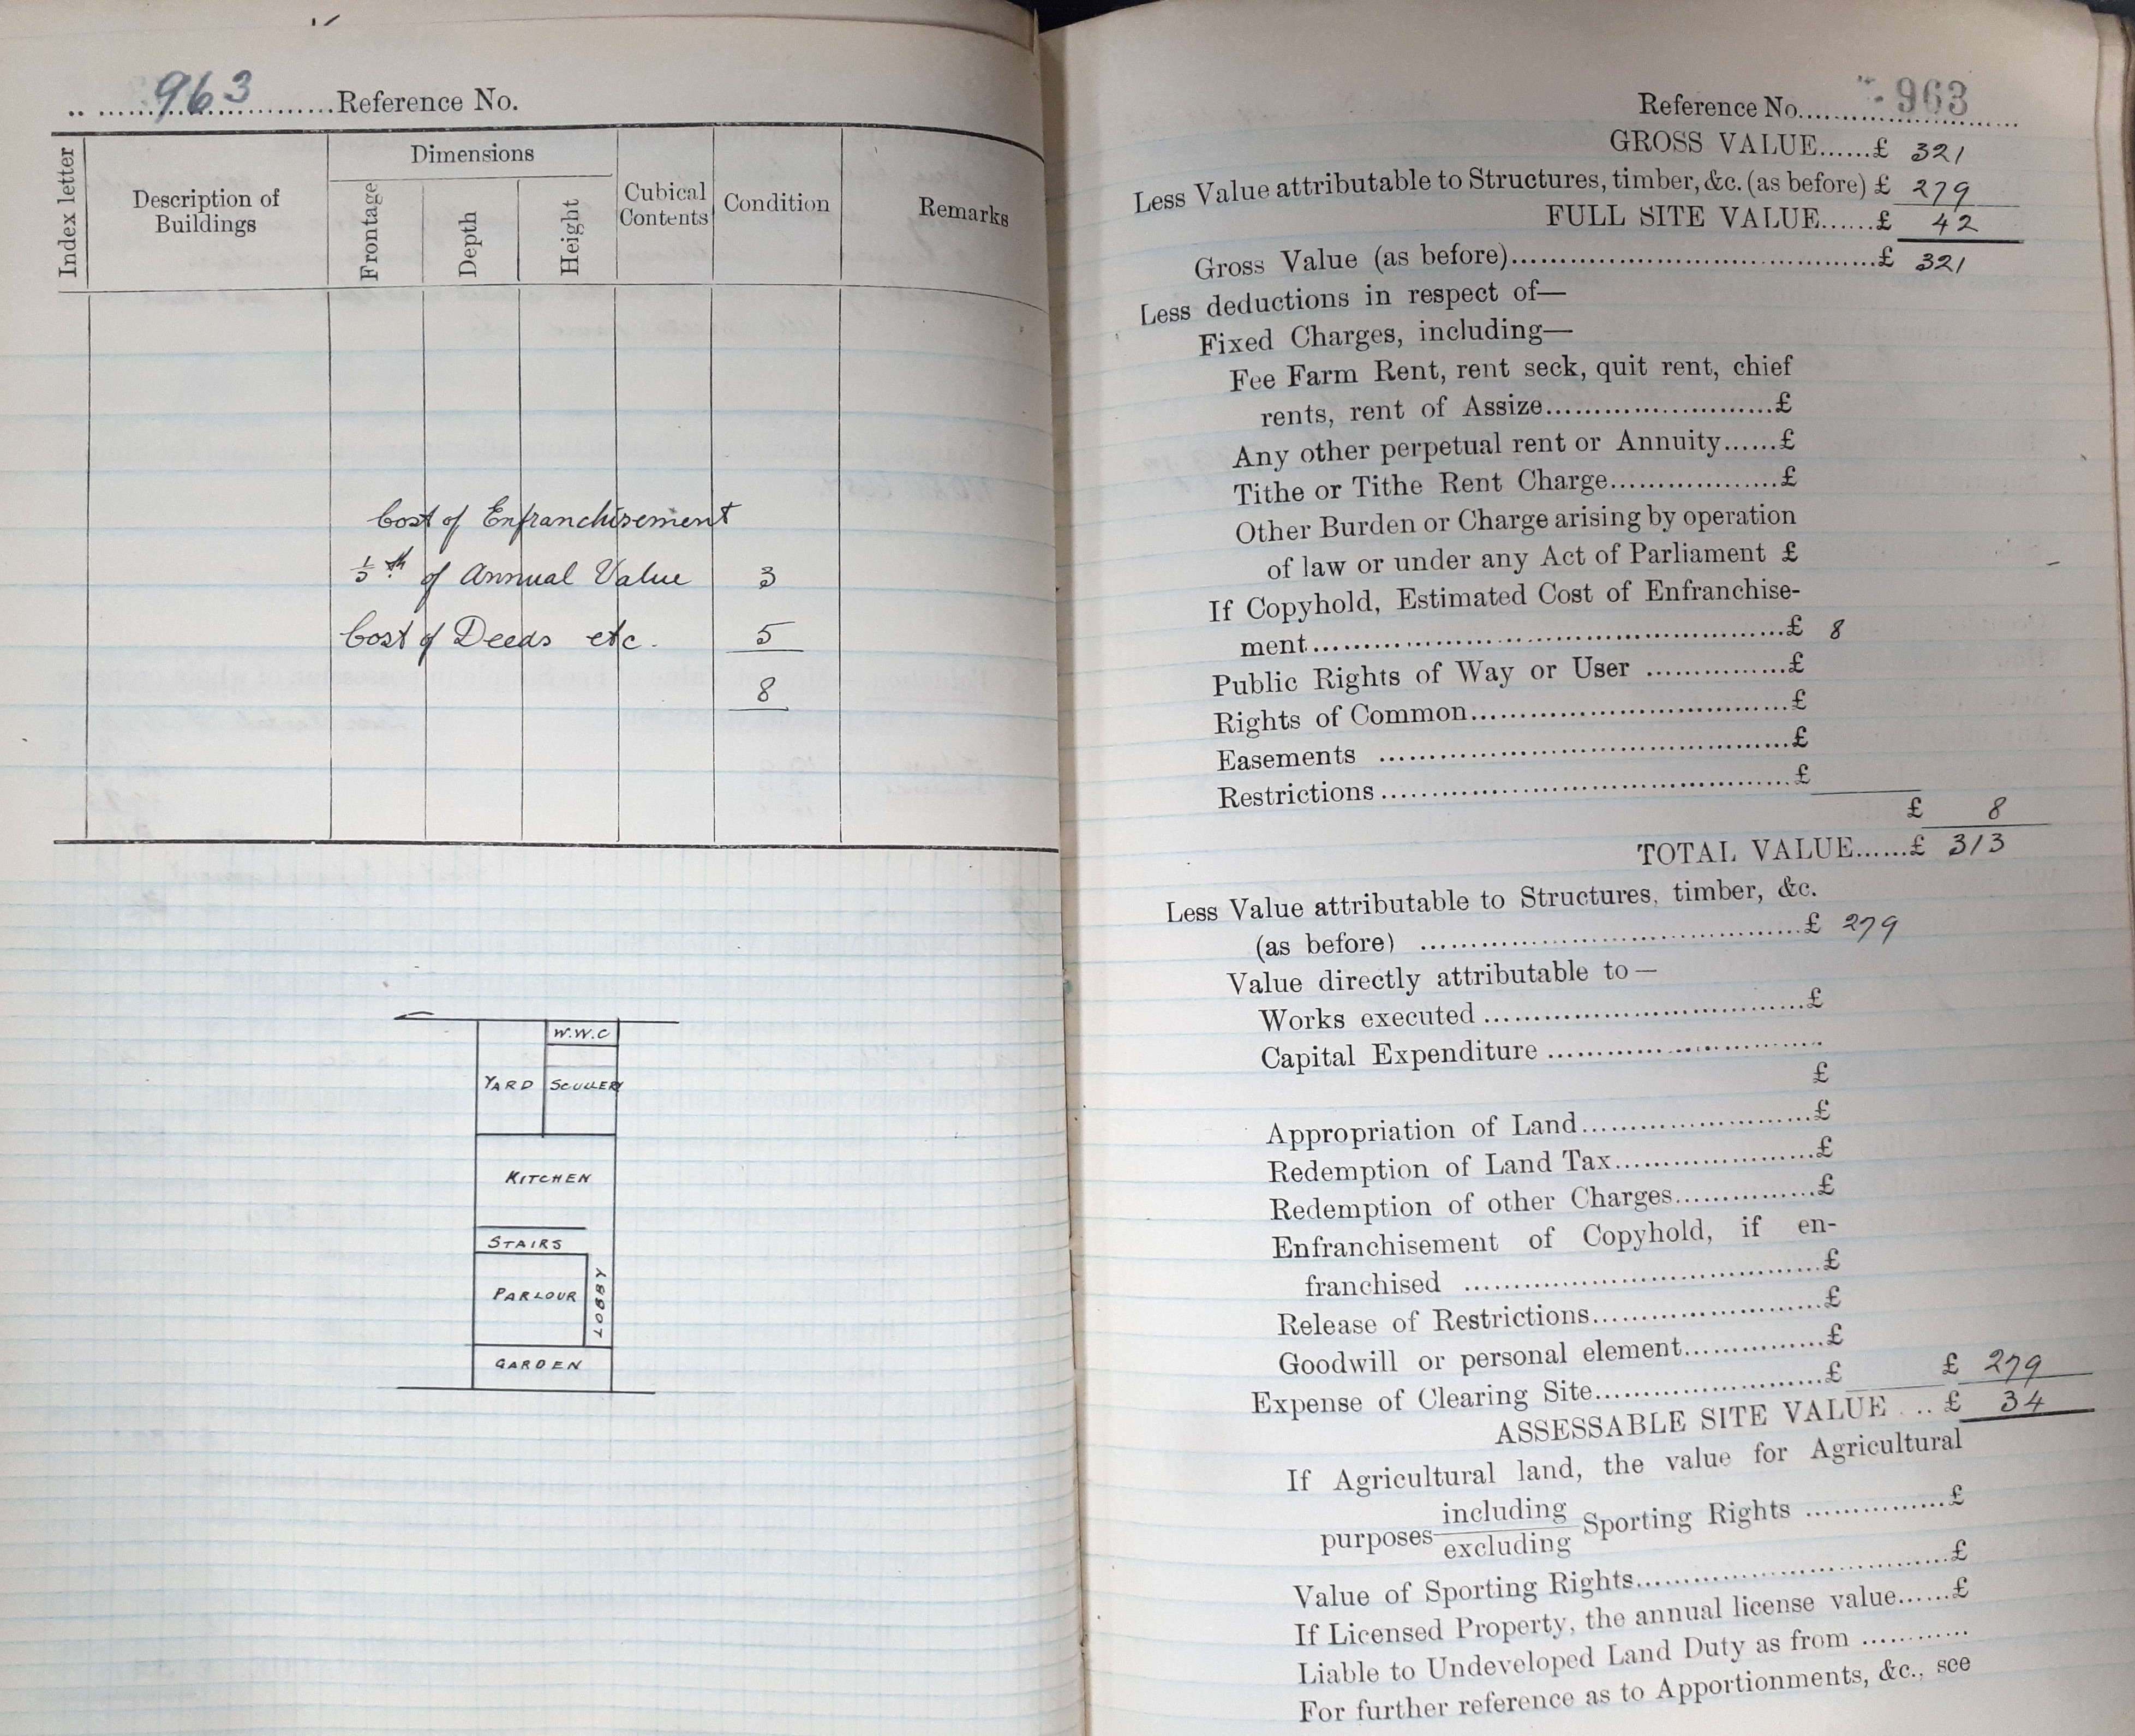 963 Reference No.
Index letter
Description of Buildings
Dimensions
Frontage
Depth
Height
Cubical Contents
Condition
Remarks
Cost of Enfranchisement
of Annual Value 3
Cost of Deeds etc. 5
8
W.W.C
YARD SCULLERY
KITCHEN
STAIRS
PARLOUR
LOBBY
GARDEN
Reference No. 963
GROSS VALUE......£ 321
Less Value attributable to Structures, timber, &c. (as before) £ 279
FULL SITE VALUE......£ 42
Gross Value (as before)......£ 321
Less deductions in respect of—
Fixed Charges, including—
Fee Farm Rent, rent seck, quit rent, chief
rents, rent of Assize......£
Any other perpetual rent or Annuity......£
Tithe or Tithe Rent Charge......£
Other Burden or Charge arising by operation
of law or under any Act of Parliament £
If Copyhold, Estimated Cost of Enfranchise-
ment......£ 8
Public Rights of Way or User ......£
Rights of Common......£
Easements ......£
Restrictions......£
£ 8
TOTAL VALUE......£ 313
Less Value attributable to Structures, timber, &c.
(as before) ......£ 279
Value directly attributable to—
Works executed ......£
Capital Expenditure ......
£
Appropriation of Land......£
Redemption of Land Tax......£
Redemption of other Charges......£
Enfranchisement of Copyhold, if en-
franchised ......£
Release of Restrictions......£
Goodwill or personal element......£
Expense of Clearing Site......£ £ 279
ASSESSABLE SITE VALUE ... £ 34
If Agricultural land, the value for Agricultural
purposes including
excluding Sporting Rights ......£
Value of Sporting Rights......£
If Licensed Property, the annual license value......£
Liable to Undeveloped Land Duty as from ......
For further reference as to Apportionments, &c., see